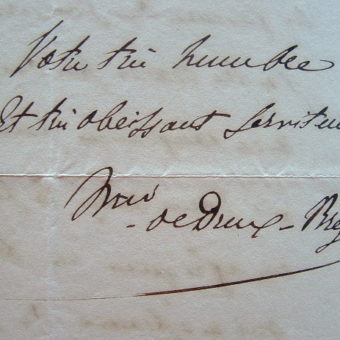 Votre très humble
Et très obéissant serviteu
de Dreux - Bré